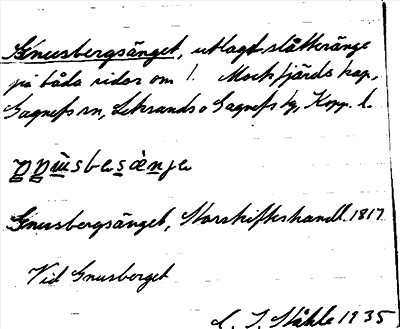 Gnusbergsänget, utlagd slåtteränge
på båda sidor om l. Mockfjärds kap.,
Gagnefs sn, Leksands o Gagnefs tg, Kopp. l.
Gnusbergsänget, Storskifteshandl. 1817
Vid Gnusberget
C. I. Ståhle 1935